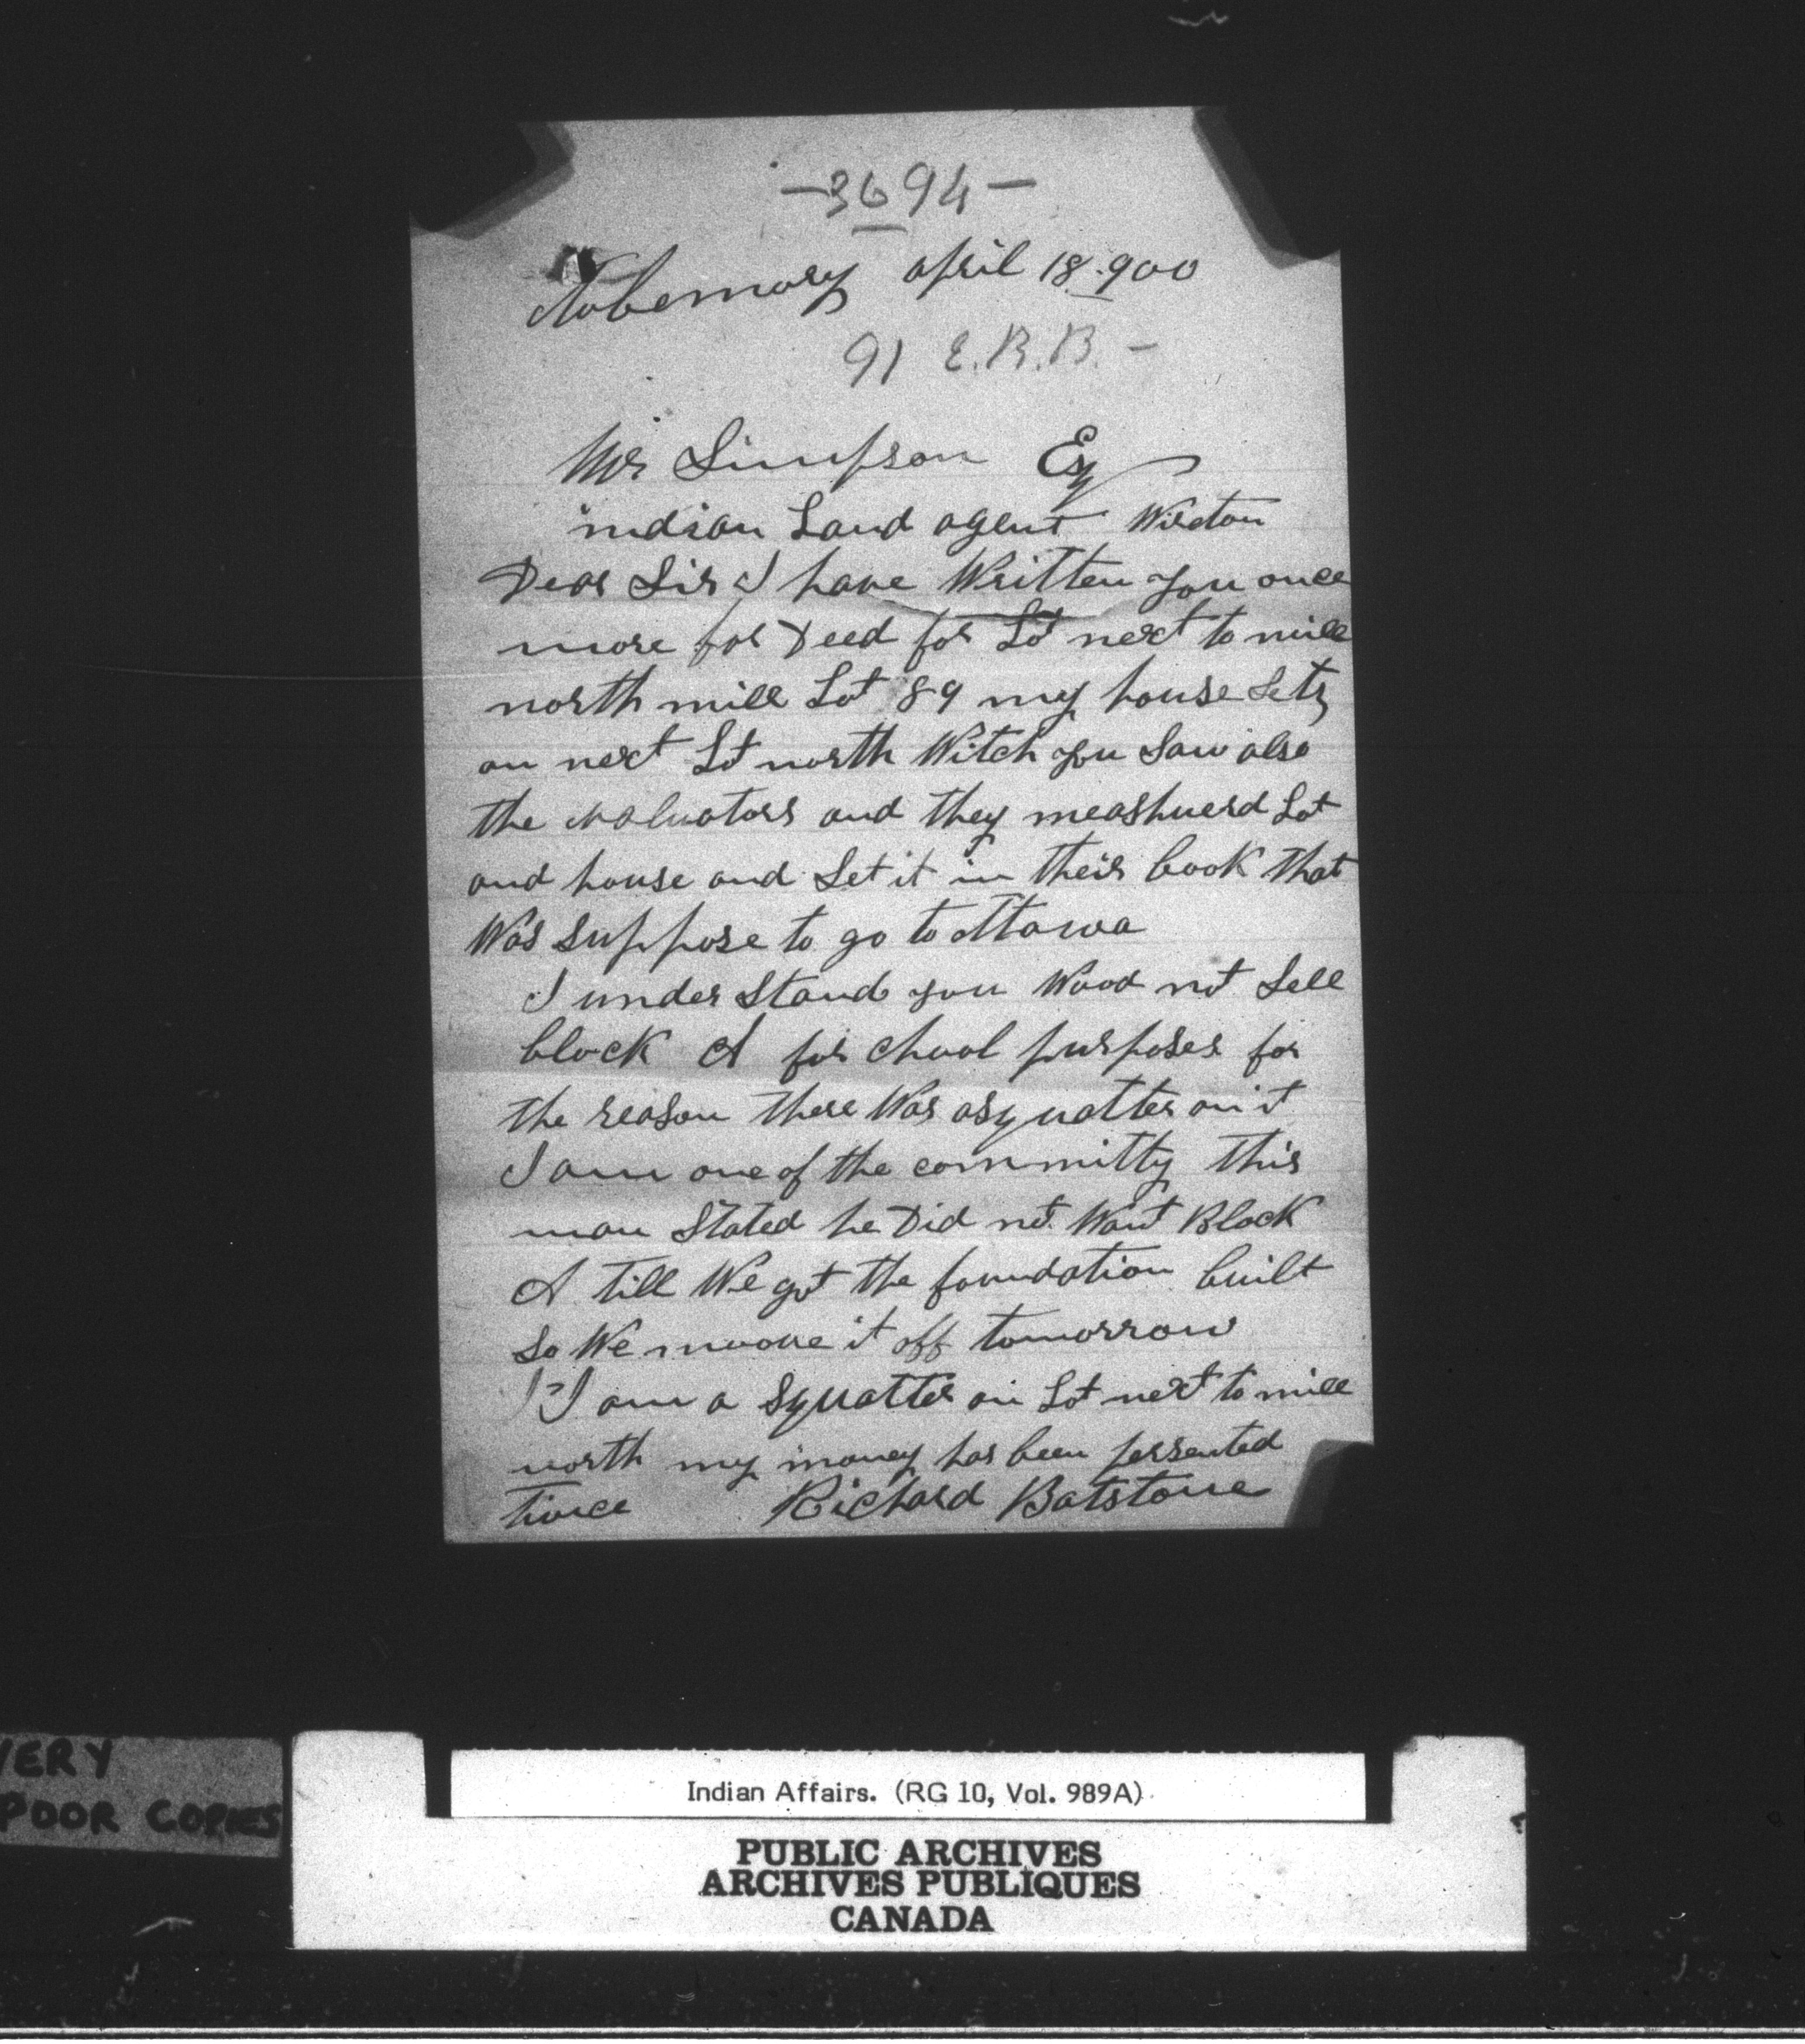 -3694-
Tobermory april 18.900
91 E.B.B. -
Mr Simpson Esq
indian Land agent Wiarton
Dear Sir I have Written you once
more for Deed for Lot next to mill
north mill Lot 89 my house Sets
on next Lot north Witch you Saw also
the valuators and they meashuerd Lot
and house and Set it in their book that
Was suppose to go to ottawa
I under Stand you Wood not Sell
block A for chool purposes for
the reason there Was a squatter on it
I am one of the committy this
man Stated he Did not Want Block
A till We got the foundation built
So We moove it off tomorrow
I am a Squatter on Lot next to mill
north my money has been persented
twice Richard Batstone
VERY
POOR COPIES
Indian Affairs. (RG 10, Vol. 989A)
PUBLIC ARCHIVES
ARCHIVES PUBLIQUES
CANADA